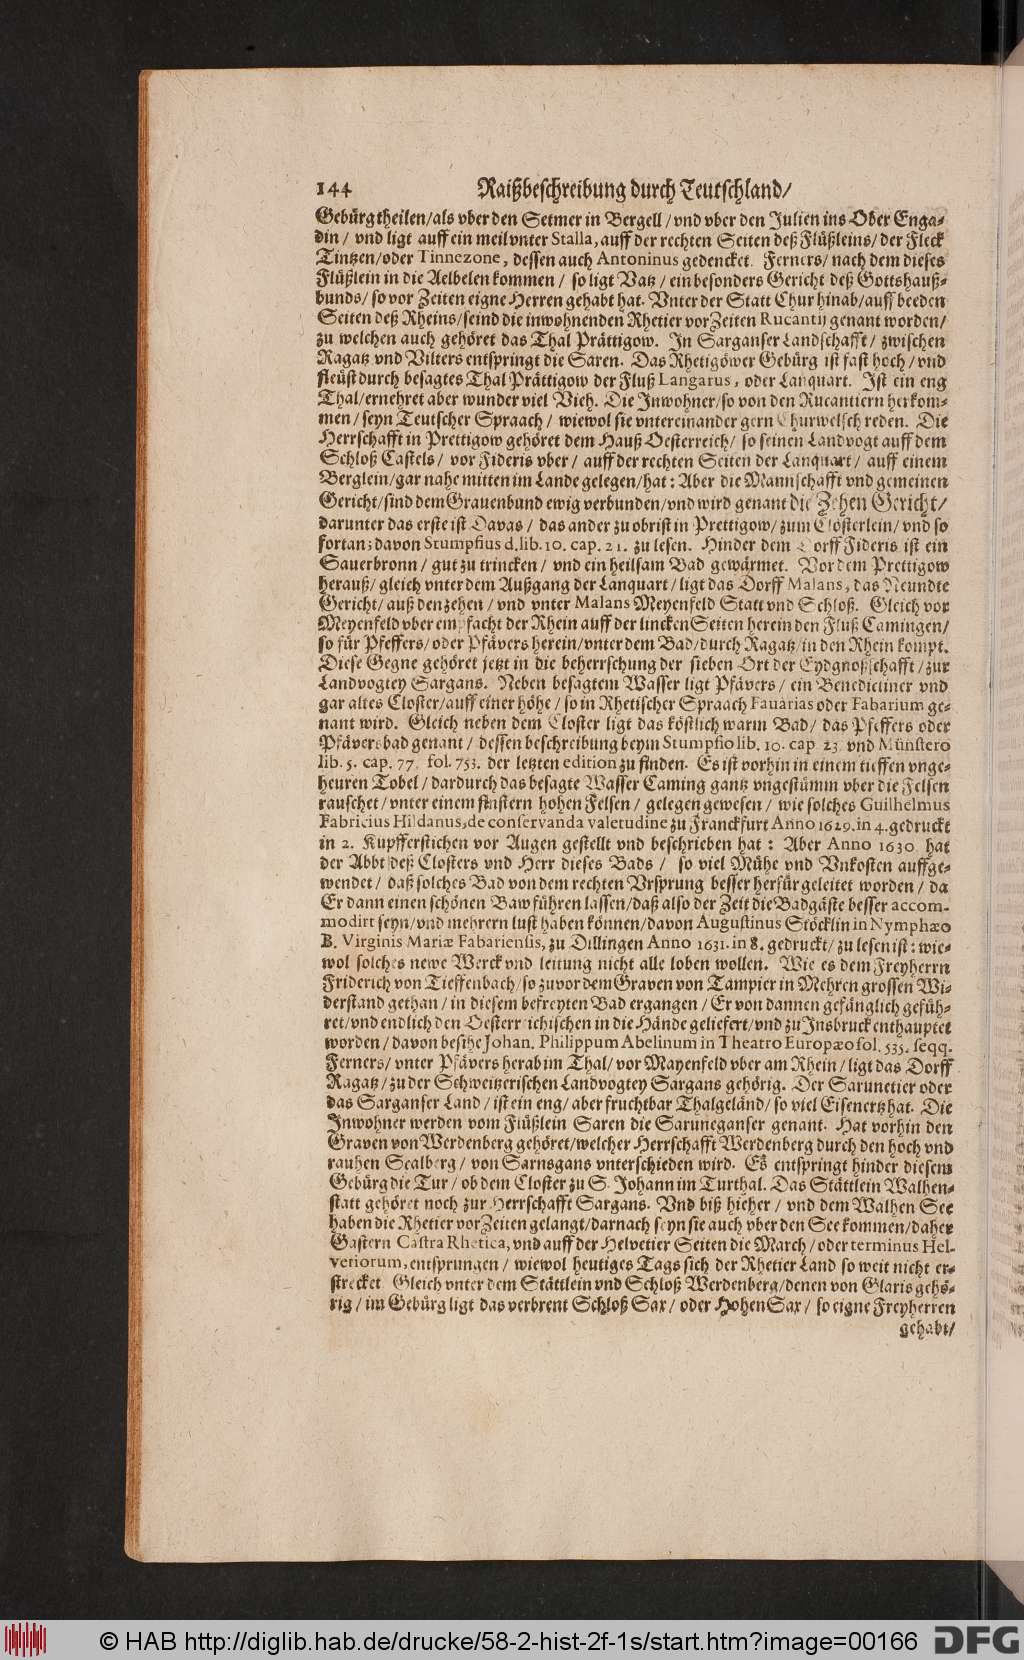 144 Raißbeschreibung durch Teutschland/
Gebürg theilen/als vber den Setmer in Bergell/vnd vber den Julien ins Ober Enga-
din/ vnd ligt auff ein meil vnter Stalla, auff der rechten Seiten deß Flüßleins/der Fleck
Tintzen/oder Tinnezone, dessen auch Antoninus gedencket. Ferners/nach dem dieses
Flüßlein in die Aelbelen kommen/ so ligt Vatz/ ein besonders Gericht deß Gottshauß-
bunds/so vor Zeiten eigne Herren gehabt hat. Vnter der Statt Chur hinab/auff beeden
Seiten deß Rheins/seind die inwohnenden Rhetier vor Zeiten Rucantij genant worden/
zu welchen auch gehöret das Thal Prättigow. In Sarganser Landschafft/ zwischen
Ragatz vnd Vilters entspringt die Saren. Das Rhetigöwer Gebürg ist fast hoch/ vnd
fleüst durch besagtes Thal Prättigow der Fluß Langarus, oder Lanquart. Ist ein eng
Thal/ernehret aber wunder viel Vieh. Die Inwohner/so von den Rucantiern herkom-
men/ seyn Teutscher Spraach/ wiewol sie vntereinander gern Churwelsch reden. Die
Herrschafft in Prettigow gehöret dem Hauß Oesterreich/ so seinen Landvogt auff dem
Schloß Castels/ vor Fideris vber/ auff der rechten Seiten der Lanquart/ auff einem
Berglein/gar nahe mitten im Lande gelegen/hat: Aber die Mannschafft vnd gemeinen
Gericht/sind dem Grauenbund ewig verbunden/vnd wird genant die Zehen Gericht/
darunter das erste ist Davas/ das ander zu obrist in Prettigow/ zum Clösterlein/vnd so
fortan; davon Stumpfius d. lib. 10. cap. 21. zu lesen. Hinder dem Dorff Fideris ist ein
Sauerbronn/ gut zu trincken/ vnd ein heilsam Bad gewärmet. Vor dem Prettigow
herauß/gleich vnter dem Außgang der Lanquart/ligt das Dorff Malans, das Neundte
Gericht/auß den zehen/ vnd vnter Malans Meyenfeld Statt vnd Schloß. Gleich vor
Meyenfeld vber empfacht der Rhein auff der lincken Seiten herein den Fluß Camingen/
so für Pfeffers/oder Pfävers herein/vnter dem Bad/durch Ragatz/in den Rhein kompt.
Diese Gegne gehöret jetzt in die beherrschung der sieben Ort der Eydgnoßschafft/zur
Landvogtey Sargans. Neben besagtem Wasser ligt Pfävers/ ein Benedictiner vnd
gar altes Closter/auff einer höhe/so in Rhetischer Spraach Fauarias oder Fabarium ge-
nant wird. Gleich neben dem Closter ligt das köstlich warm Bad/ das Pfeffers oder
Pfäversbad genant/ dessen beschreibung beym Stumpfio lib. 10. cap. 23. vnd Münstero
lib. 5. cap. 77. fol. 753. der letzten edition zu finden. Es ist vorhin in einem tieffen vnge-
heuren Tobel/ dardurch das besagte Wasser Caming gantz vngestümm vber die Felsen
rauschet/vnter einem finstern hohen Felsen/ gelegen gewesen/ wie solches Guilhelmus
Fabricius Hildanus, de conservanda valetudine zu Franckfurt Anno 1629. in 4. gedruckt
in 2. Kupfferstichen vor Augen gestellt vnd beschrieben hat: Aber Anno 1630. hat
der Abbt deß Closters vnd Herr dieses Bads/ so viel Mühe vnd Vnkosten auffge-
wendet/ daß solches Bad von dem rechten Vrsprung besser herfür geleitet worden/ da
Er dann einen schönen Baw führen lassen/daß also der Zeit die Badgäste besser accom-
modirt seyn/vnd mehrern lust haben können/davon Augustinus Stöcklin in Nymphæo
B. Virginis Mariæ Fabariensis, zu Dillingen Anno 1631. in 8. gedruckt/zu lesen ist: wie-
wol solches newe Werck vnd leitung nicht alle loben wollen. Wie es dem Freyherrn
Friderich von Tieffenbach/so zuvor dem Graven von Tampier in Mehren grossen Wi-
derstand gethan/ in diesem befreyten Bad ergangen/ Er von dannen gefänglich gefüh-
ret/vnd endlich den Oesterreichischen in die Hände geliefert/vnd zu Insbruck enthauptet
worden/davon besihe Johan. Philippum Abelinum in Theatro Europæo fol. 535. seqq.
Ferners/vnter Pfävers herab im Thal/vor Mayenfeld vber am Rhein/ligt das Dorff
Ragatz/zu der Schweitzerischen Landvogtey Sargans gehörig. Der Sarunetier oder
das Sarganser Land/ ist ein eng/aber fruchtbar Thalgeländ/so viel Eisenertz hat. Die
Inwohner werden vom Flüßlein Saren die Saruneganser genant. Hat vorhin den
Graven von Werdenberg gehöret/welcher Herrschafft Werdenberg durch den hoch vnd
rauhen Sealberg/ von Sarnsgans vnterschieden wird. Es entspringt hinder diesem
Gebürg die Tur/ ob dem Closter zu S. Johann im Turthal. Das Stättlein Walhen-
statt gehöret noch zur Herrschafft Sargans. Vnd biß hieher/ vnd dem Walhen See
haben die Rhetier vor Zeiten gelangt/darnach seyn sie auch vber den See kommen/daher
Gastern Castra Rhetica, vnd auff der Helvetier Seiten die March/oder terminus Hel-
vetiorum, entsprungen/ wiewol heutiges Tags sich der Rhetier Land so weit nicht er-
strecket. Gleich vnter dem Stättlein vnd Schloß Werdenberg/denen von Glaris gehö-
rig/im Gebürg ligt das verbrent Schloß Sax/ oder HohenSax/ so eigne Freyherren
gehabt/
© HAB http://diglib.hab.de/drucke/58-2-hist-2f-1s/start.htm?image=00166 DFG